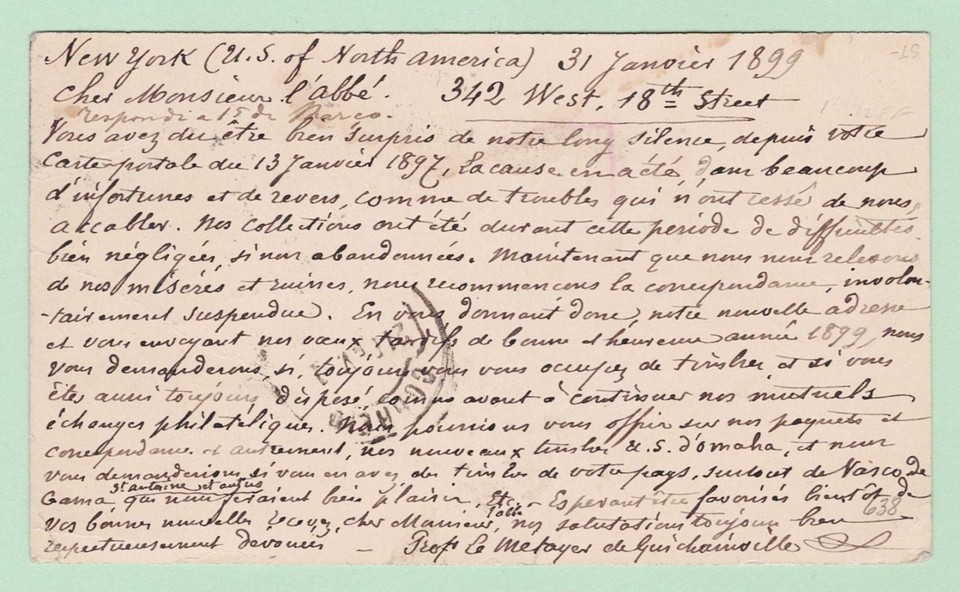 New York (U.S. of North America) 31 Janvier 1899
Cher Monsieur l'abbé. 342 West. 18th Street
respondi a 15 de Março.
Vous avez du être bien surpris de notre long silence, depuis votre
Carte-postale du 13 Janvier 1897, La cause en a été, dans beaucoup
d'infortunes et de revers, comme de troubles qui n'ont cessé de nous
accabler. Nos collections ont été durant cette période de difficultés
bien négligées, si non abandonnées. Maintenant que nous nous relevons
de nos misérés et ruines, nous recommençons la correspondance, involon-
-tairement suspendue. En vous donnant donc, notre nouvelle adresse
et vous envoyant nos vœux, tardifs de bonne et heureuse année 1899, nous
vous demanderons si, toujours vous vous occupez de timbres et si vous
êtes aussi toujours disposé comme avant à continuer nos mutuels
échanges philatéliques. Nous pourrions vous offrir sur nos paquets et
correspondance et autrement, nos nouveaux timbres U.S. d'Omaha, et nous
vous demanderions si vous en avez, des timbres de votre pays, surtout de Vasco de
Gama St Antoine et autres qui nous feraient bien plaisir, Etc. - Esperant être favorisés bientôt de
vos bonnes nouvelles recevez, cher Monsieur, nos salutations toujours bien 638
respectueusement devoués — Prof. Le Métayer de Guichainville